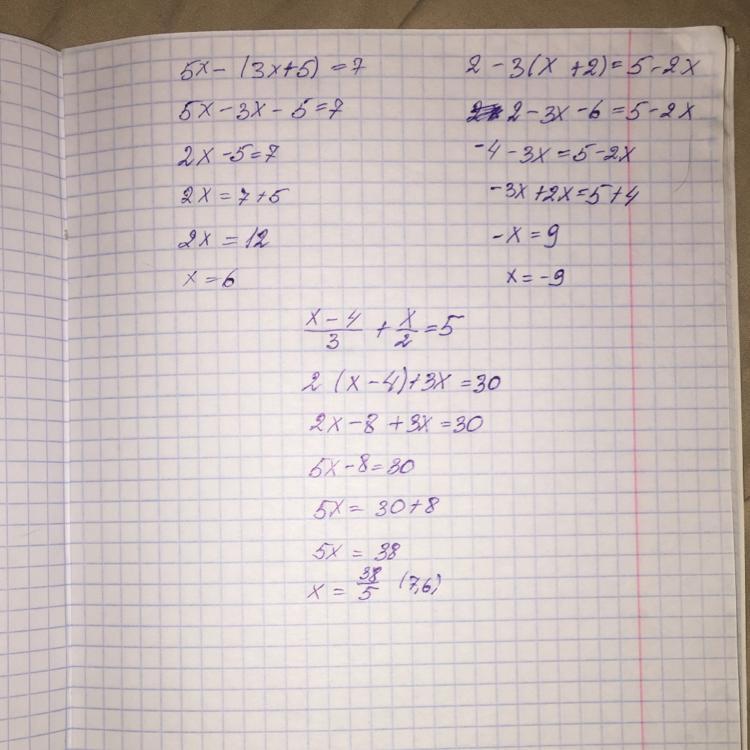 5x - (3x+5) = 7
5x - 3x - 5 = 7
2x - 5 = 7
2x = 7+5
2x = 12
x = 6
2 - 3(x + 2) = 5 - 2x
2 - 3x - 6 = 5 - 2x
-4 - 3x = 5 - 2x
-3x + 2x = 5 + 4
-x = 9
x = -9
(x - 4)/3 + x/2 = 5
2 (x - 4) + 3x = 30
2x - 8 + 3x = 30
5x - 8 = 30
5x = 30 + 8
5x = 38
x = 38/5 (7,6)